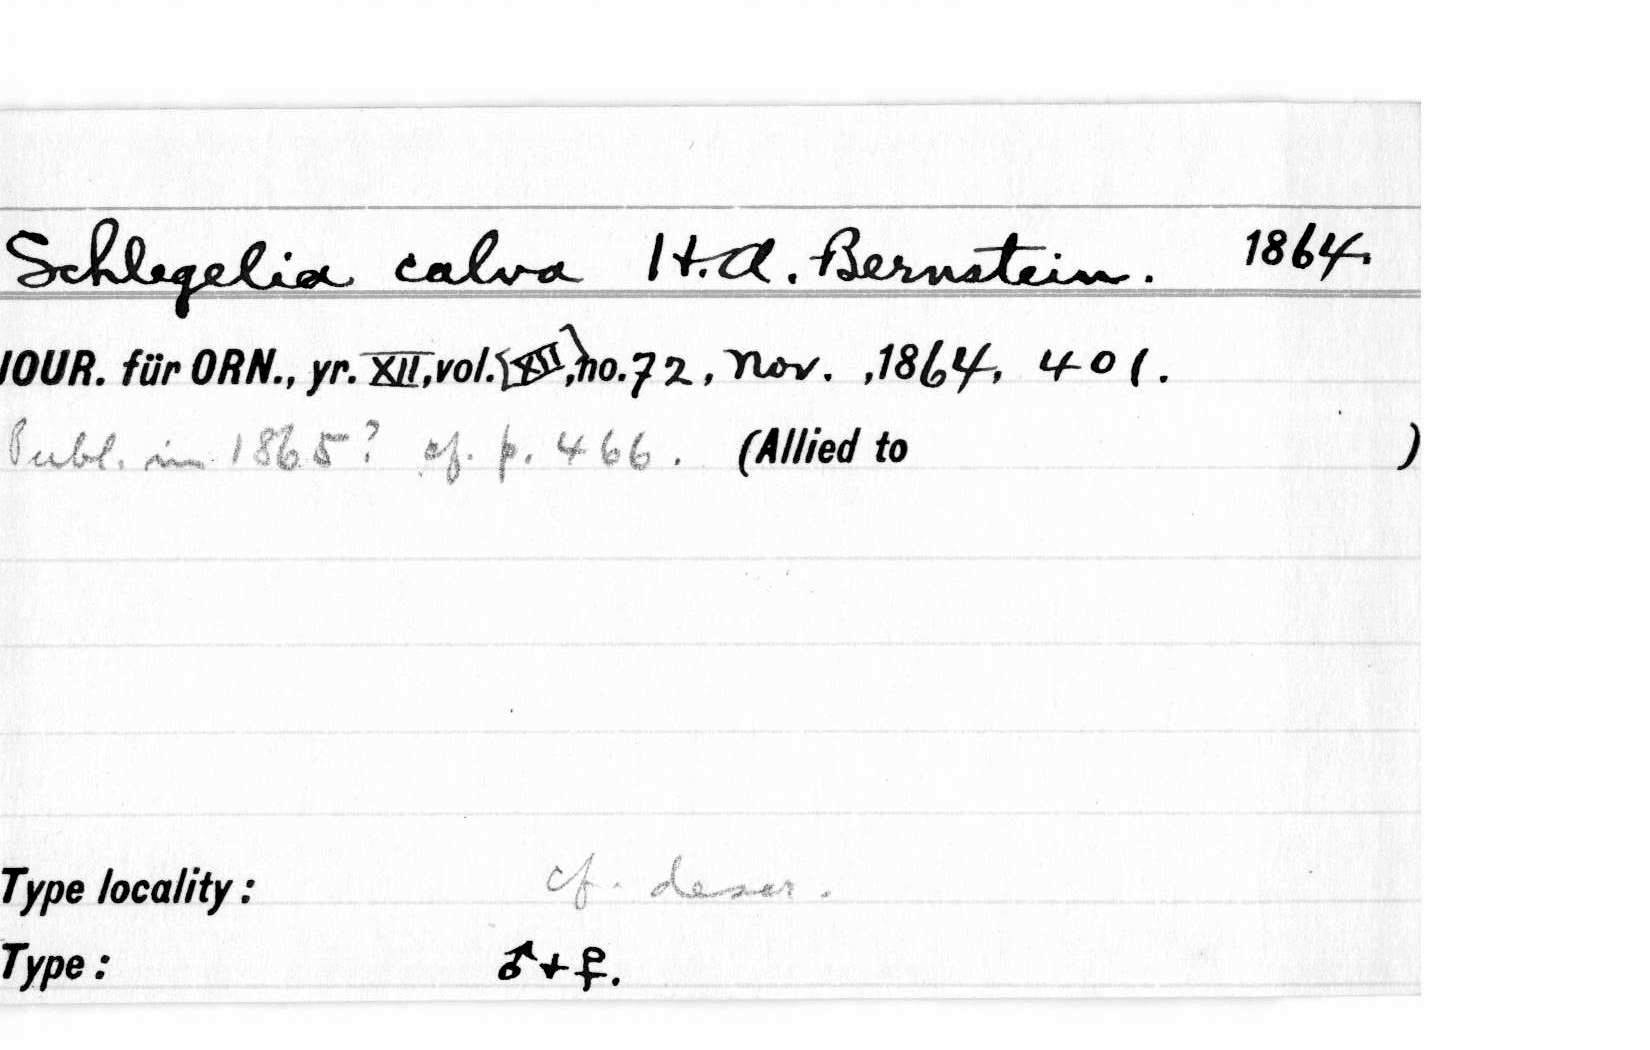 Schlegelia calva H.A. Bernstein. 1864.
JOUR. für ORN., yr. XII, vol. [XII], no. 72, Nov. , 1864, 401.
Publ. in 1865? cf. p. 466. (Allied to )
Type locality: cf. descr.
Type: ♂+♀.